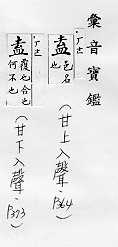 彙音寶鑑
盍 色名也
(甘上入聲·P364)
盍 覆也合也何不也
(甘下入聲·P373)